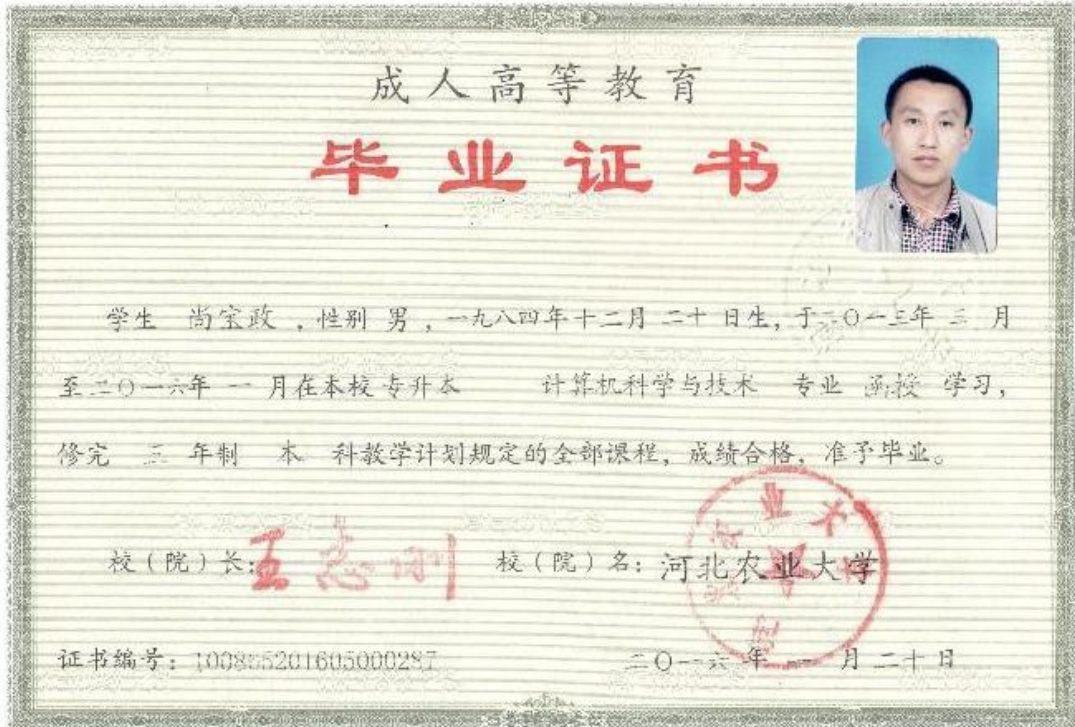 成人高等教育
毕业证书
学生 尚宝政 ，性别 男 ，一九八四年十二月 二十 日生，于二〇一三年 三 月
至二〇一六年 一 月在本校 专升本 计算机科学与技术 专业 函授 学习，
修完 三 年制 本 科教学计划规定的全部课程，成绩合格，准予毕业。
校（院）长：王志刚 校（院）名：河北农业大学
证书编号： 二〇一六 年 一 月 二十 日